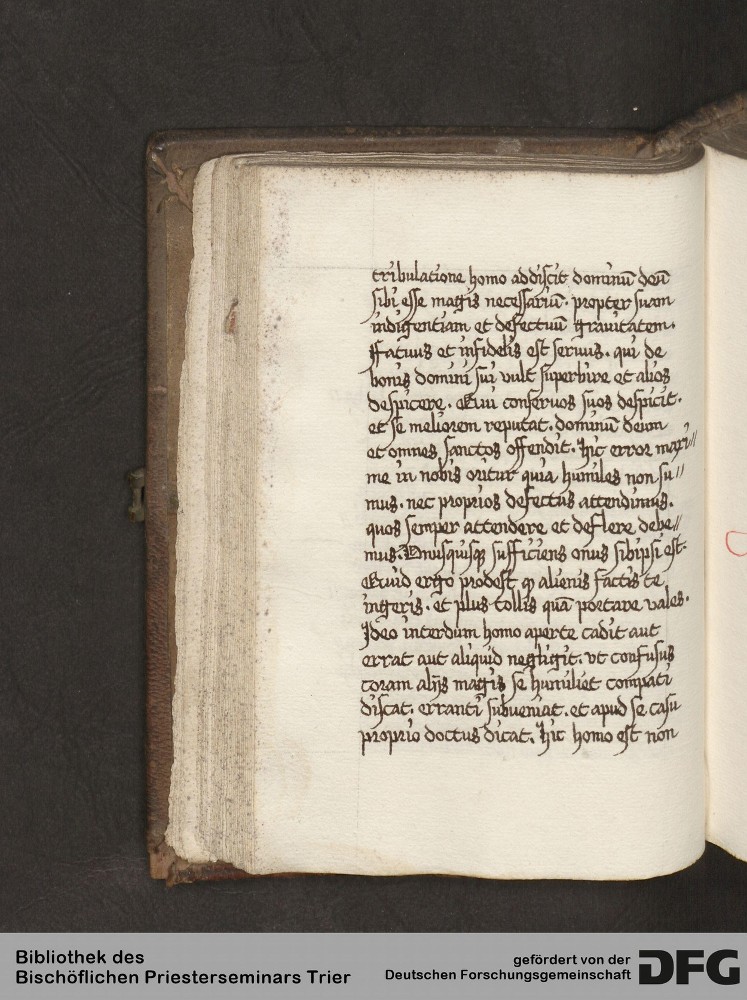 tribulatione homo addiscit dominū deū
sibi esse magis necessariū. propter suam
indigentiam et defectuū grauitatem.
Ffatuus et infidelis est seruus. qui de
bonis domini sui vult superbire et alios
despicere. Qui conseruos suos despicit.
et se meliorem reputat. dominū deum
et omnes sanctos offendit. Hic error maxi//
me in nobis oritur quia humiles non su//
mus. nec proprios defectus attendimus.
quos semper attendere et deflere debe//
mus. Vnusquisqꝫ sufficiens onus sibipsi est.
Quid ergo prodest ꝙ alienis factis te
ingeris. et plus tollis quā portare vales.
Ideo interdum homo aperte cadit aut
errat aut aliquid negligit. vt confusus
coram alijs magis se humiliet compati
discat. erranti subueniat. et apud se casu
proprio doctus dicat. Hic homo est non
Bibliothek des
Bischöflichen Priesterseminars Trier
gefördert von der
Deutschen Forschungsgemeinschaft
DFG